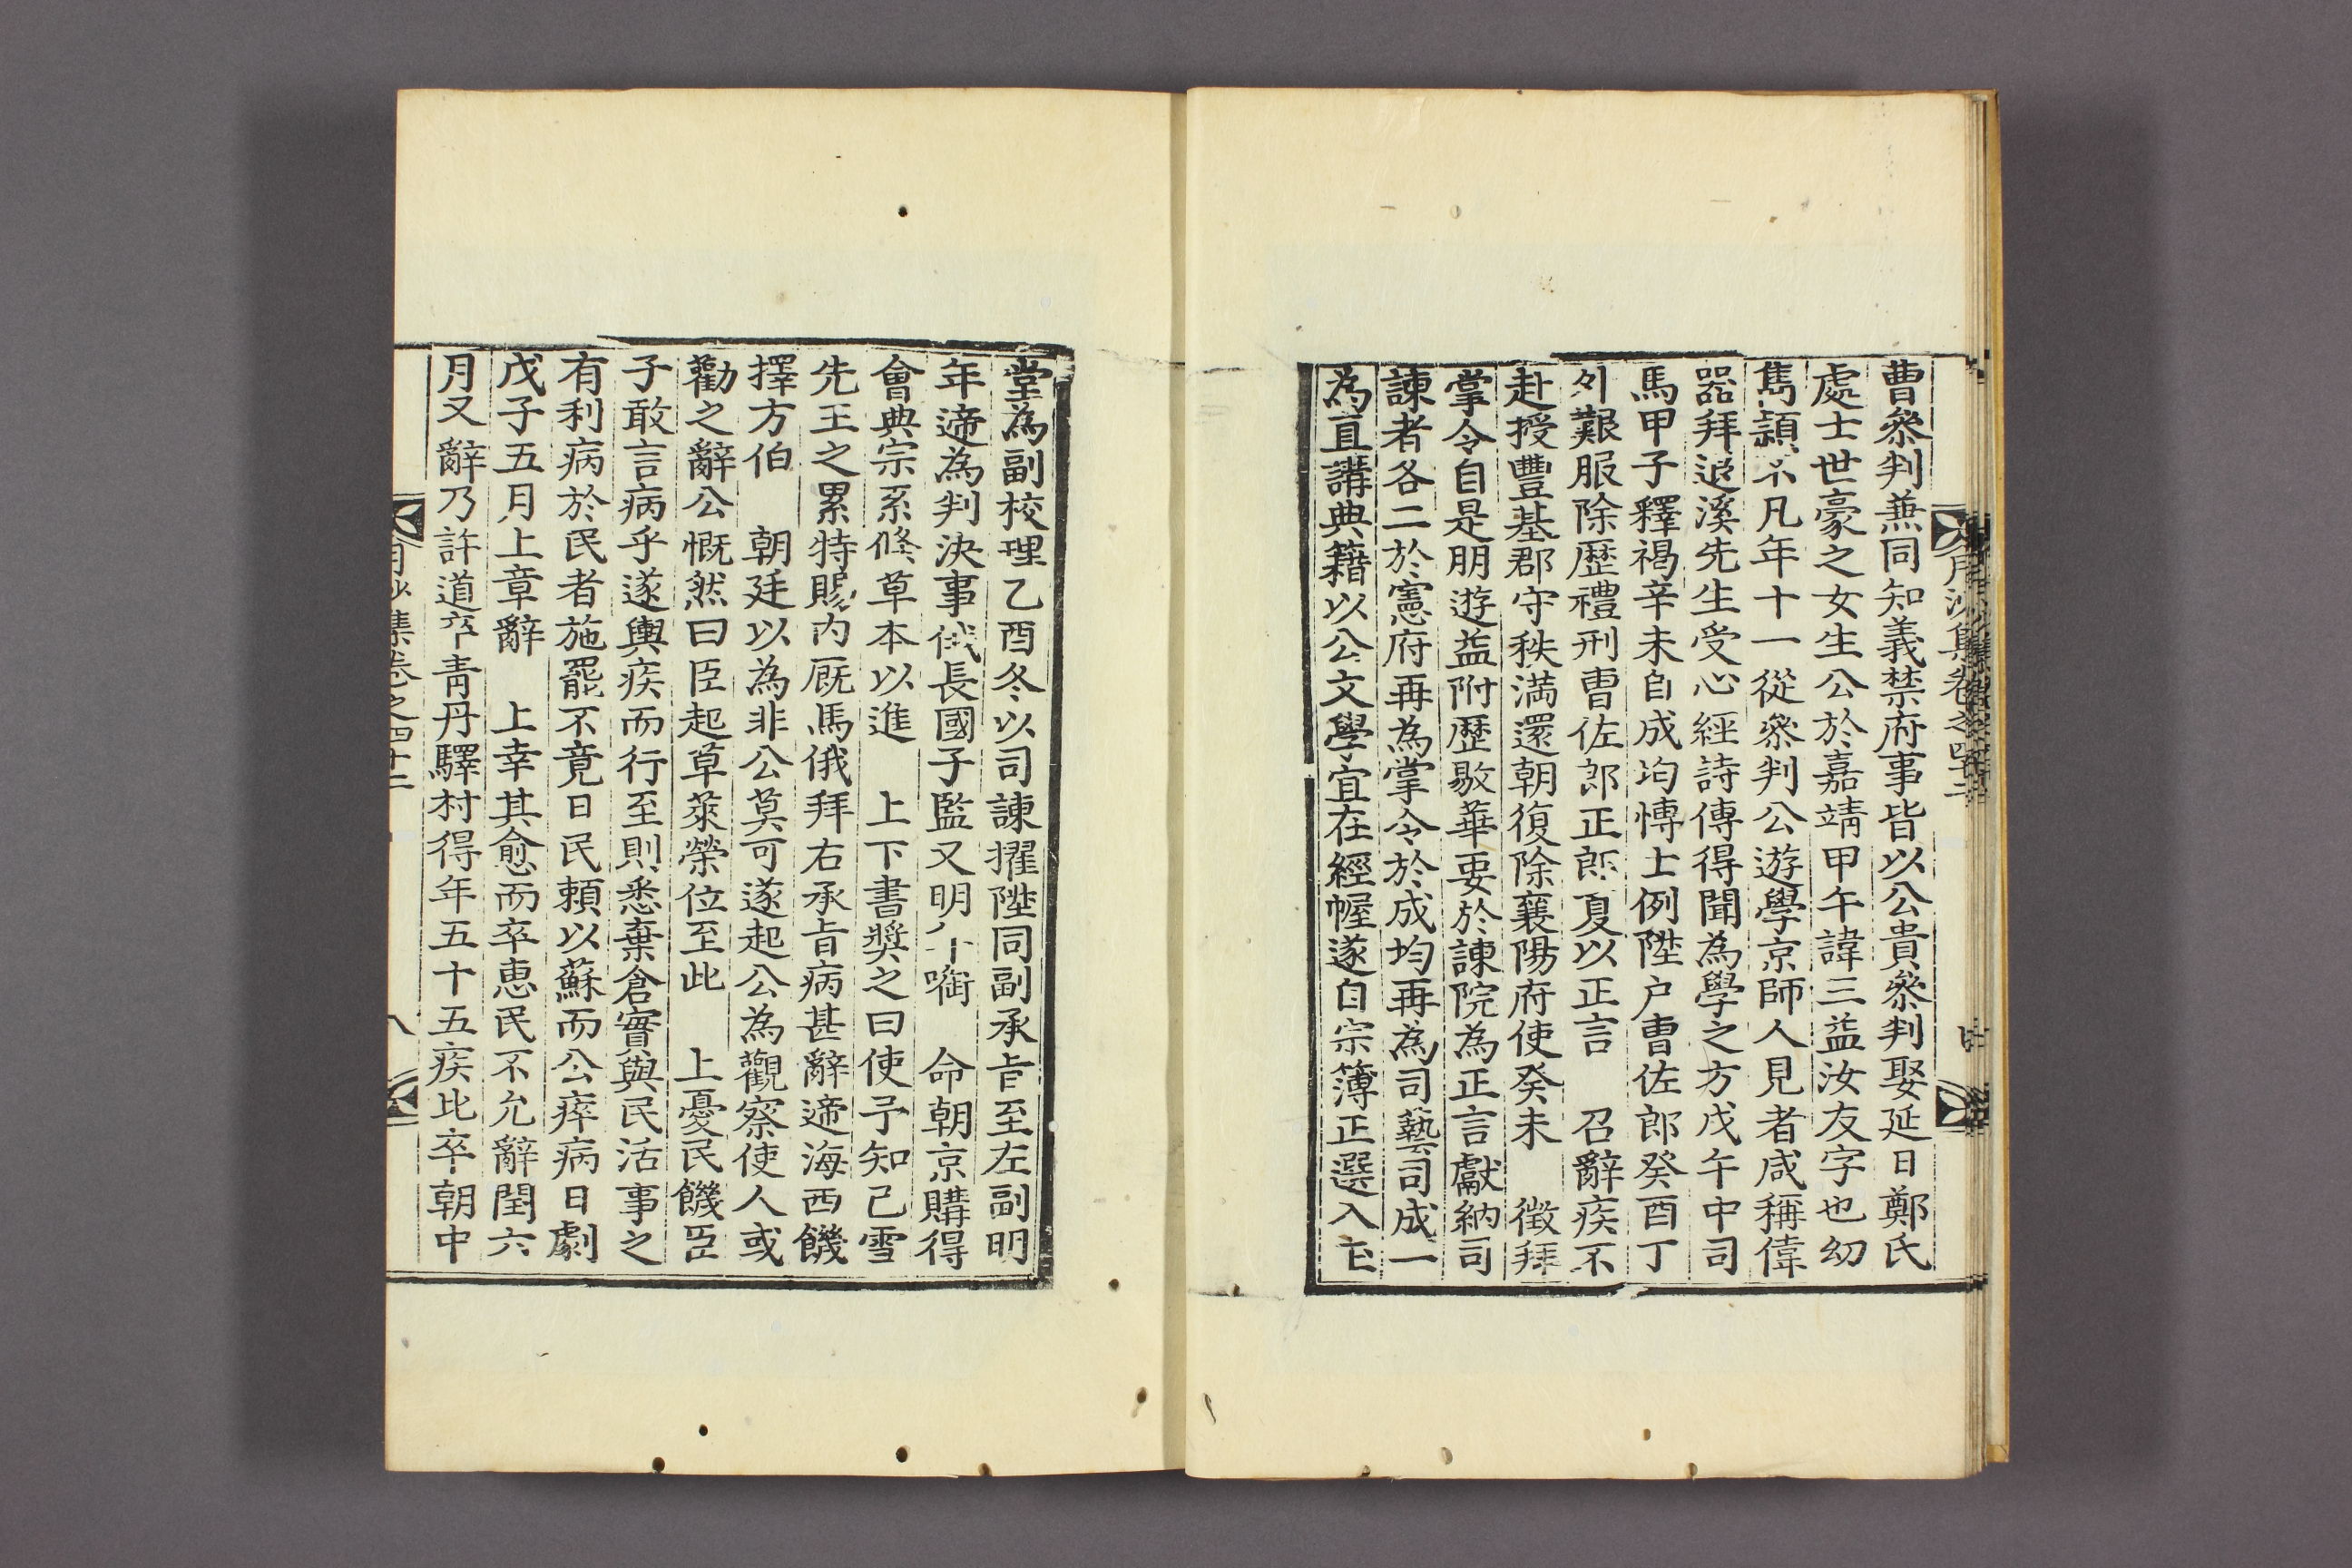 曹叅判兼同知義禁府事皆以公貴叅判娶延日鄭氏
處士世豪之女生公於嘉靖甲午諱三益汝友字也幼
雋頴不凡年十一從叅判公遊學京師人見者咸稱偉
器拜退溪先生受心經詩傳得聞為學之方戊午中司
馬甲子釋褐辛未自成均博士例陞户曹佐郎癸酉丁
外艱服除歷禮刑曹佐郎正郎夏以正言 召辭疾不
赴授豐基郡守秩滿還朝復除襄陽府使癸未 徵拜
掌令自是朋遊益附歷敭華要於諫院為正言獻納司
諫者各二於憲府再為掌令於成均再為司藝司成一
為直講典籍以公文學宜在經幄遂自宗簿正選入玉
堂為副校理乙酉冬以司諫擢陞同副承旨至左副明
年遞為判決事俄長國子監又明年啣 命朝京購得
會典宗系修草本以進 上下書奬之曰使予知已雪
先王之累特賜内厩馬俄拜右承旨病甚辭遞海西饑
擇方伯 朝廷以為非公莫可遂起公為觀察使人或
勸之辭公慨然曰臣起草萊榮位至此 上憂民饑臣
子敢言病乎遂輿疾而行至則悉棄倉實與民活事之
有利病於民者施罷不竟日民頼以蘇而公瘁病日劇
戊子五月上章辭 上幸其愈而卒惠民不允辭閏六
月又辭乃許道卒青丹驛村得年五十五疾比卒朝中
月沙集卷之四十二
八